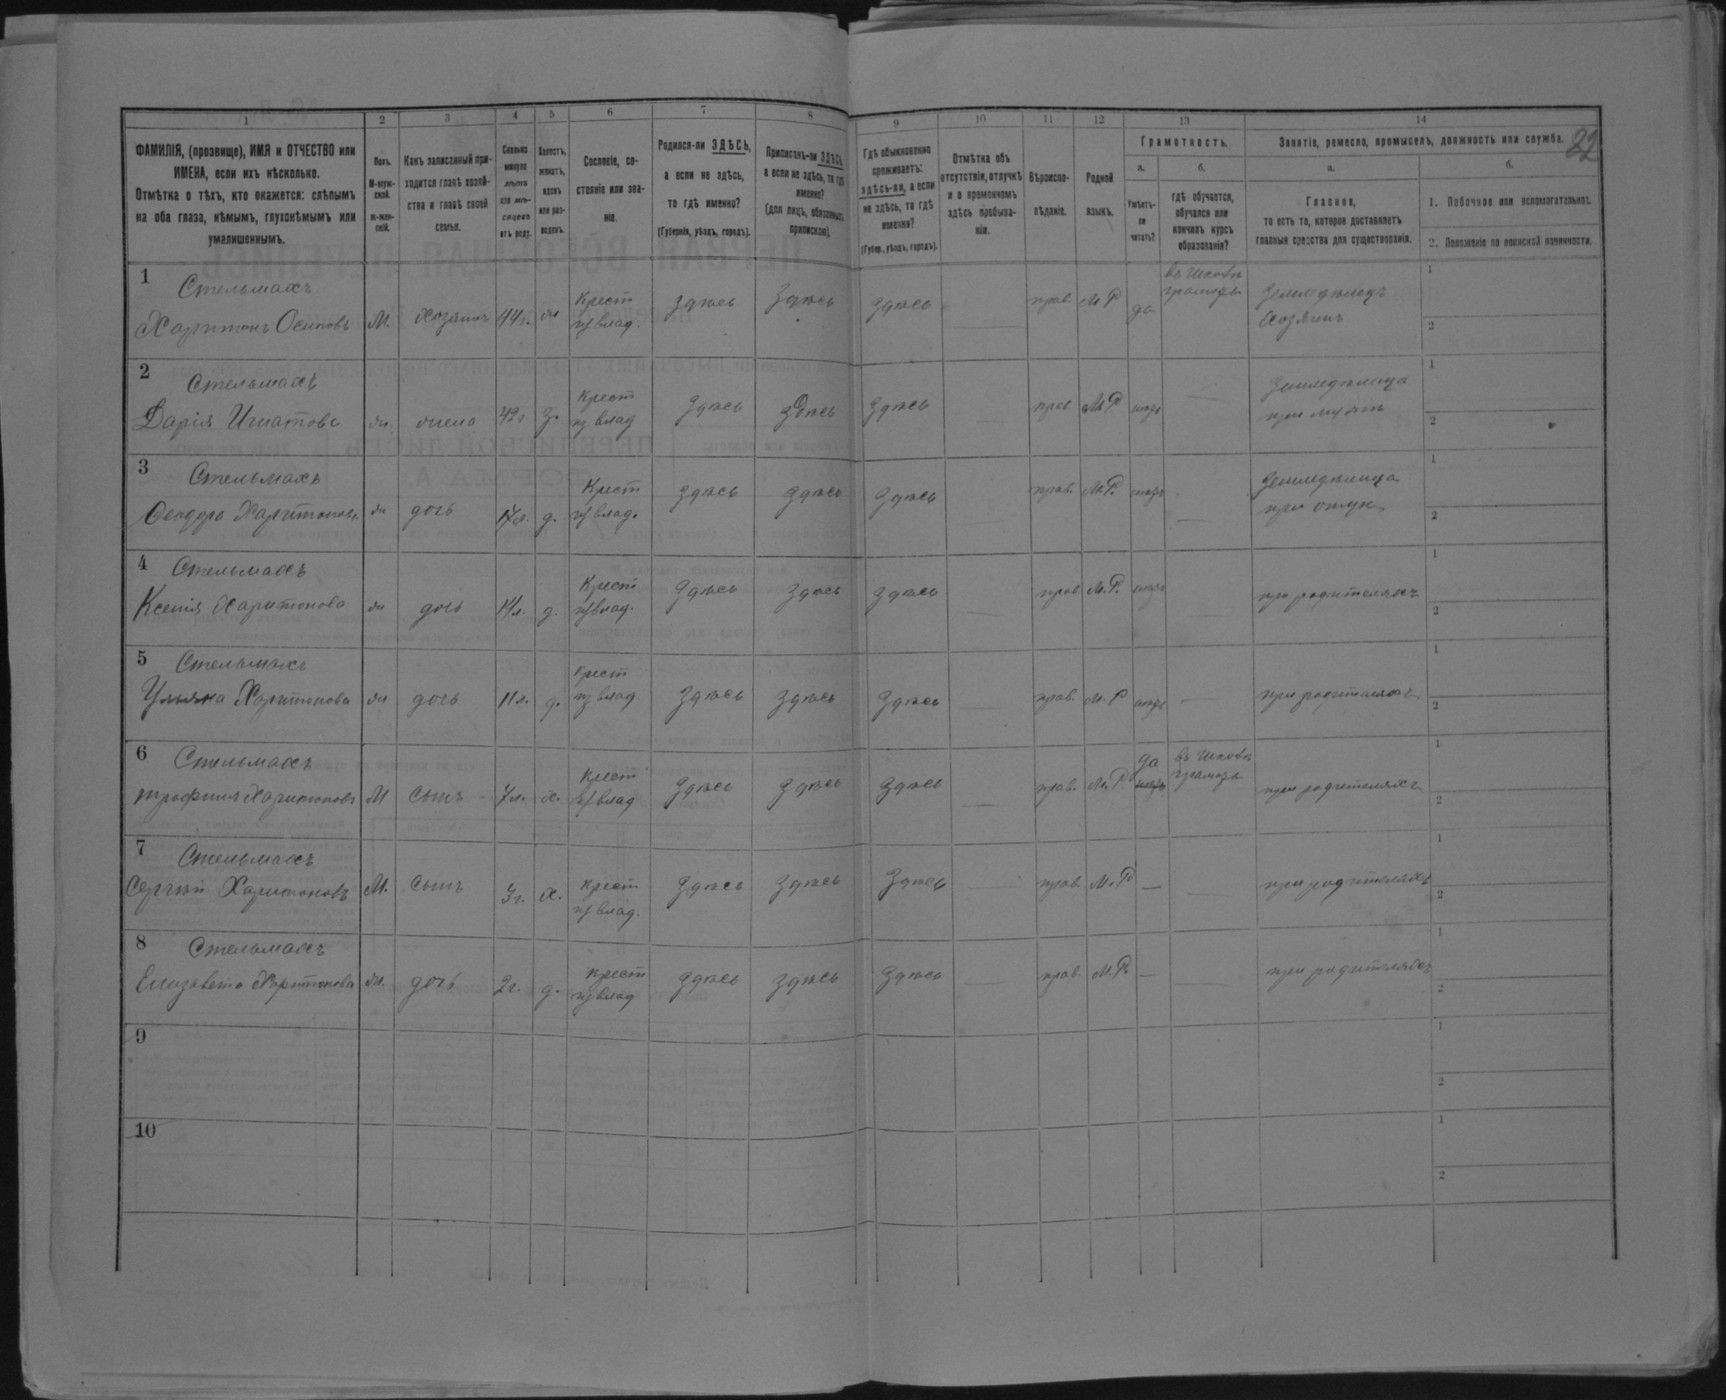 1 2 3 4 5 6 7 8 9 10 11 12 13 14
22
ФАМИЛІЯ, (прозвище), ИМЯ и ОТЧЕСТВО или
ИМЕНА, если ихъ нѣсколько.
Отмѣтка о тѣхъ, кто окажется: слѣпымъ
на оба глаза, нѣмымъ, глухонѣмымъ или
умалишеннымъ.
Полъ.
М-муж-
ской.
ж-жен-
скій.
Какъ записанный при-
ходится главѣ хозяй-
ства и главѣ своей
семьи.
Сколько
минуло
лѣтъ
или мѣ-
сяцевъ
отъ роду.
Холостъ,
женатъ,
вдовъ
или раз-
веденъ.
Сословіе, со-
стояніе или зва-
ніе.
Родился-ли ЗДѢСЬ,
а если не здѣсь,
то гдѣ именно?
(Губернія, уѣздъ, городъ).
Приписанъ-ли ЗДѢСЬ,
а если не здѣсь, то гдѣ
именно?
(для лицъ, обязанныхъ
припискою).
Гдѣ обыкновенно
проживаетъ:
здѣсь-ли, а если
не здѣсь, то гдѣ
именно?
(Губер., уѣздъ, городъ).
Отмѣтка объ
отсутствіи, отлучкѣ
и о временномъ
здѣсь пребыва-
ніи.
Вѣроиспо-
вѣданіе.
Родной
языкъ.
Грамотность.
а.
Умѣетъ-
ли
читать?
б.
гдѣ обучается,
обучался или
кончилъ курсъ
образованія?
Занятіе, ремесло, промыселъ, должность или служба.
а.
Главное,
то есть то, которое доставляетъ
главныя средства для существованія.
б.
1. Побочное или вспомогательное.
2. Положеніе по воинской повинности.
1
Стельмахъ
Харитонъ Осиповъ М. Хозяинъ 44г. ж Крест из влад. Здѣсь Здѣсь Здѣсь — прав. М.Р. да Земледѣлецъ
Хозяинъ
1
2
2
Стельмахъ
Дарія Игнатова ж. жена 42г. з. Крест из влад Здѣсь Здѣсь Здѣсь прав М.Р. нѣтъ — Земледѣлица
при мужѣ
1
2
3
Стельмахъ
Харитонова ж дочь 17л. д. Крест из влад. Здѣсь Здѣсь Здѣсь прав. М.Р. нѣтъ — Земледѣлица
при отцѣ
1
2
4
Стельмахъ
Ксенія Харитонова ж дочь 14л. д. Крест из влад. Здѣсь Здѣсь Здѣсь — прав М.Р. нѣтъ — при родителяхъ
1
2
5
Стельмахъ
Ульяна Харитонова ж дочь 11л. д. Крест из влад. Здѣсь Здѣсь Здѣсь прав. М.Р нѣтъ — при родителяхъ
1
2
6
Стельмахъ
Трофимъ Харитоновъ М сынъ 7л. х. Крест из влад Здѣсь Здѣсь Здѣсь — прав. М.Р да нѣтъ при родителяхъ
1
2
7
Стельмахъ
Сергѣй Харитоновъ М. сынъ 3г. х. Крест из влад. Здѣсь Здѣсь Здѣсь прав. М.Р. — при родителяхъ
1
2
8
Стельмахъ
Елизавета Харитонова ж. дочь 2г. д. Крест из влад Здѣсь Здѣсь Здѣсь — прав. М.Р. — при родителяхъ
1
2
9
1
2
10
1
2